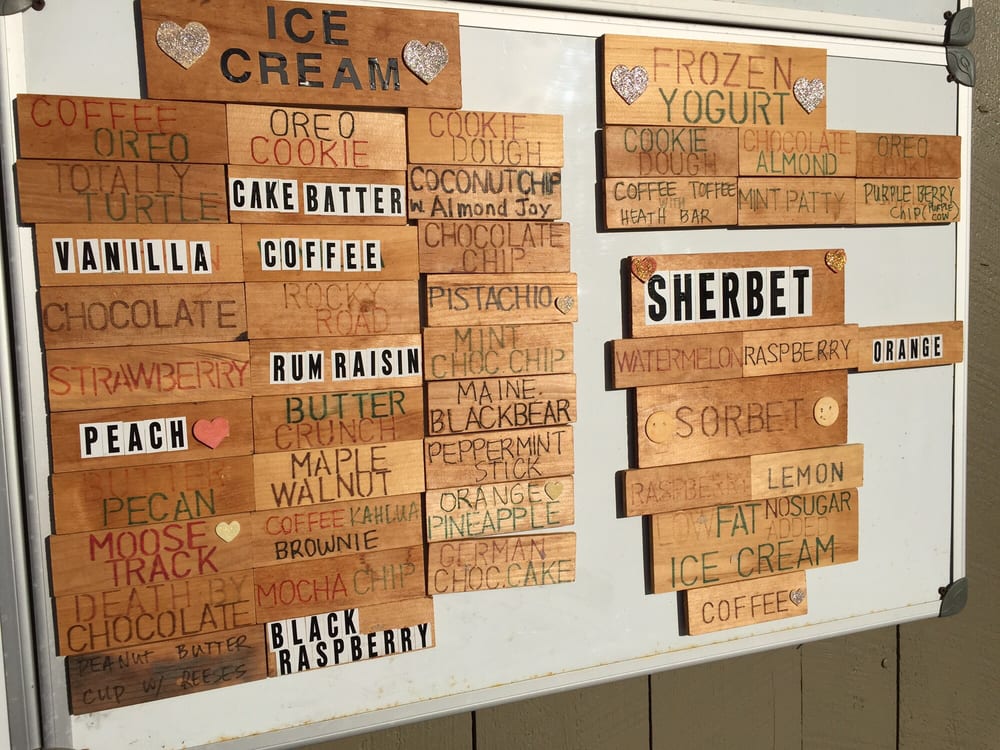 ICE
CREAM
COFFEE
OREO
TOTALLY
TURTLE
VANILLA
CHOCOLATE
STRAWBERRY
PEACH
BUTTER
PECAN
MOOSE
TRACK
DEATH BY
CHOCOLATE
PEANUT BUTTER
CUP W/ REESES
OREO
COOKIE
CAKE BATTER
COFFEE
ROCKY
ROAD
RUM RAISIN
BUTTER
CRUNCH
MAPLE
WALNUT
COFFEE KAHLUA
BROWNIE
MOCHA CHIP
BLACK
RASPBERRY
COOKIE
DOUGH
COCONUT CHIP
W. Almond Joy
CHOCOLATE
CHIP
PISTACHIO
MINT
CHOC. CHIP
MAINE
BLACKBEAR
PEPPERMINT
STICK
ORANGE
PINEAPPLE
GERMAN
CHOC. CAKE
FROZEN
YOGURT
COOKIE
DOUGH
CHOCOLATE
ALMOND
OREO
COFFEE TOFFEE
WITH
HEATH BAR
MINT PATTY
PURPLE BERRY
Chip (PURPLE
COW
SHERBET
WATERMELON
RASPBERRY
ORANGE
SORBET
RASPBERRY
LEMON
LOW FAT NO SUGAR
ADDED
ICE CREAM
COFFEE